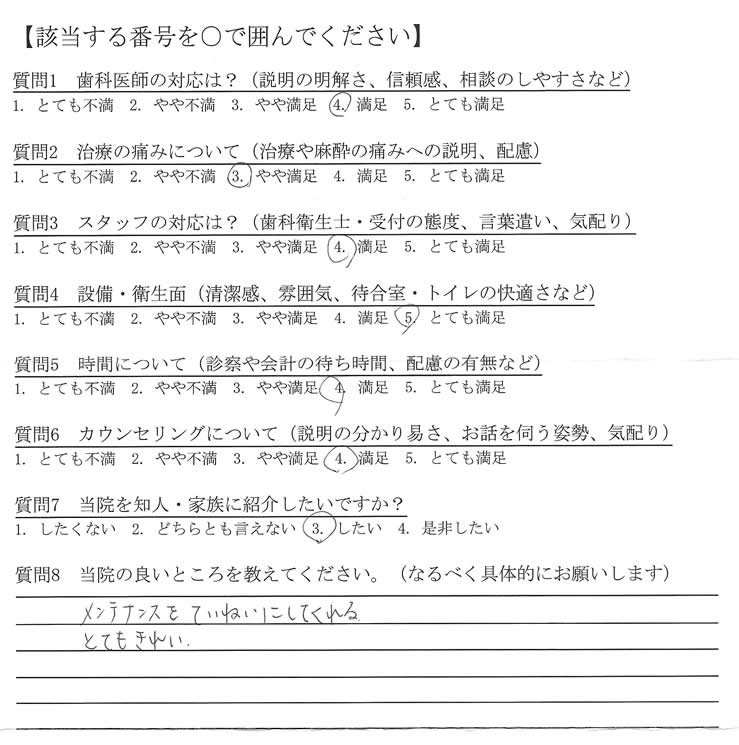 【該当する番号を〇で囲んでください】
質問1　歯科医師の対応は？（説明の明解さ、信頼感、相談のしやすさなど）
1. とても不満　2. やや不満　3. やや満足　4. 満足　5. とても満足
質問2　治療の痛みについて（治療や麻酔の痛みへの説明、配慮）
1. とても不満　2. やや不満　3. やや満足　4. 満足　5. とても満足
質問3　スタッフの対応は？（歯科衛生士・受付の態度、言葉遣い、気配り）
1. とても不満　2. やや不満　3. やや満足　4. 満足　5. とても満足
質問4　設備・衛生面（清潔感、雰囲気、待合室・トイレの快適さなど）
1. とても不満　2. やや不満　3. やや満足　4. 満足　5. とても満足
質問5　時間について（診察や会計の待ち時間、配慮の有無など）
1. とても不満　2. やや不満　3. やや満足　4. 満足　5. とても満足
質問6　カウンセリングについて（説明の分かり易さ、お話を伺う姿勢、気配り）
1. とても不満　2. やや不満　3. やや満足　4. 満足　5. とても満足
質問7　当院を知人・家族に紹介したいですか？
1. したくない　2. どちらとも言えない　3. したい　4. 是非したい
質問8　当院の良いところを教えてください。（なるべく具体的にお願いします）
メンテナンスを ていねいにしてくれる
とてもきれい.